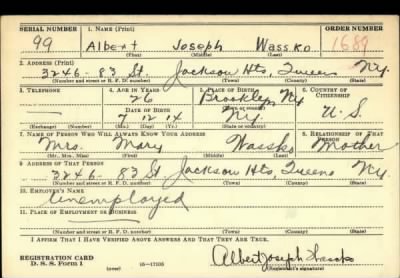 SERIAL NUMBER 1. NAME (Print) ORDER NUMBER
99 Albert Joseph Wassko 1689
(First) (Middle) (Last)
2. ADDRESS (Print)
3246-83 St. Jackson Hts, Queens NY.
(Number and street or R. F. D. number) (Town) (County) (State)
3. TELEPHONE 4. AGE IN YEARS 5. PLACE OF BIRTH 6. COUNTRY OF CITIZENSHIP
26 Brooklyn NY
DATE OF BIRTH (Town or county)
7 12 14 NY. U.S.
(Exchange) (Number) (Mo.) (Day) (Yr.) (State or country)
7. NAME OF PERSON WHO WILL ALWAYS KNOW YOUR ADDRESS 8. RELATIONSHIP OF THAT PERSON
Mrs. Mary Wassko Mother
(Mr., Mrs., Miss) (First) (Middle) (Last)
9. ADDRESS OF THAT PERSON
3246-83 St Jackson Hts, Queens NY.
(Number and street or R. F. D. number) (Town) (County) (State)
10. EMPLOYER'S NAME
Unemployed
11. PLACE OF EMPLOYMENT OR BUSINESS
(Number and street or R. F. D. number) (Town) (County) (State)
I AFFIRM THAT I HAVE VERIFIED ABOVE ANSWERS AND THAT THEY ARE TRUE.
REGISTRATION CARD Albert Joseph Wassko
D. S. S. Form 1 (over) 16-17105 (Registrant's signature)